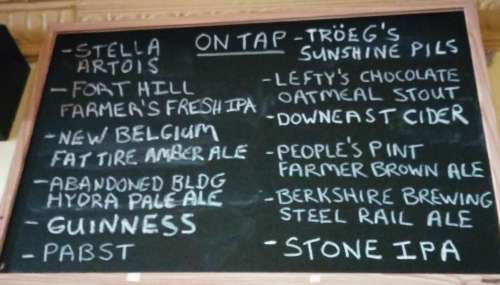 ON TAP
- STELLA
ARTOIS
- FORT HILL
FARMER'S FRESH IPA
- NEW BELGIUM
FAT TIRE AMBER ALE
- ABANDONED BLDG
HYDRA PALE ALE
- GUINNESS
- PABST
- TRÖEG'S
SUNSHINE PILS
- LEFTY'S CHOCOLATE
OATMEAL STOUT
- DOWNEAST CIDER
- PEOPLE'S PINT
FARMER BROWN ALE
- BERKSHIRE BREWING
STEEL RAIL ALE
- STONE IPA